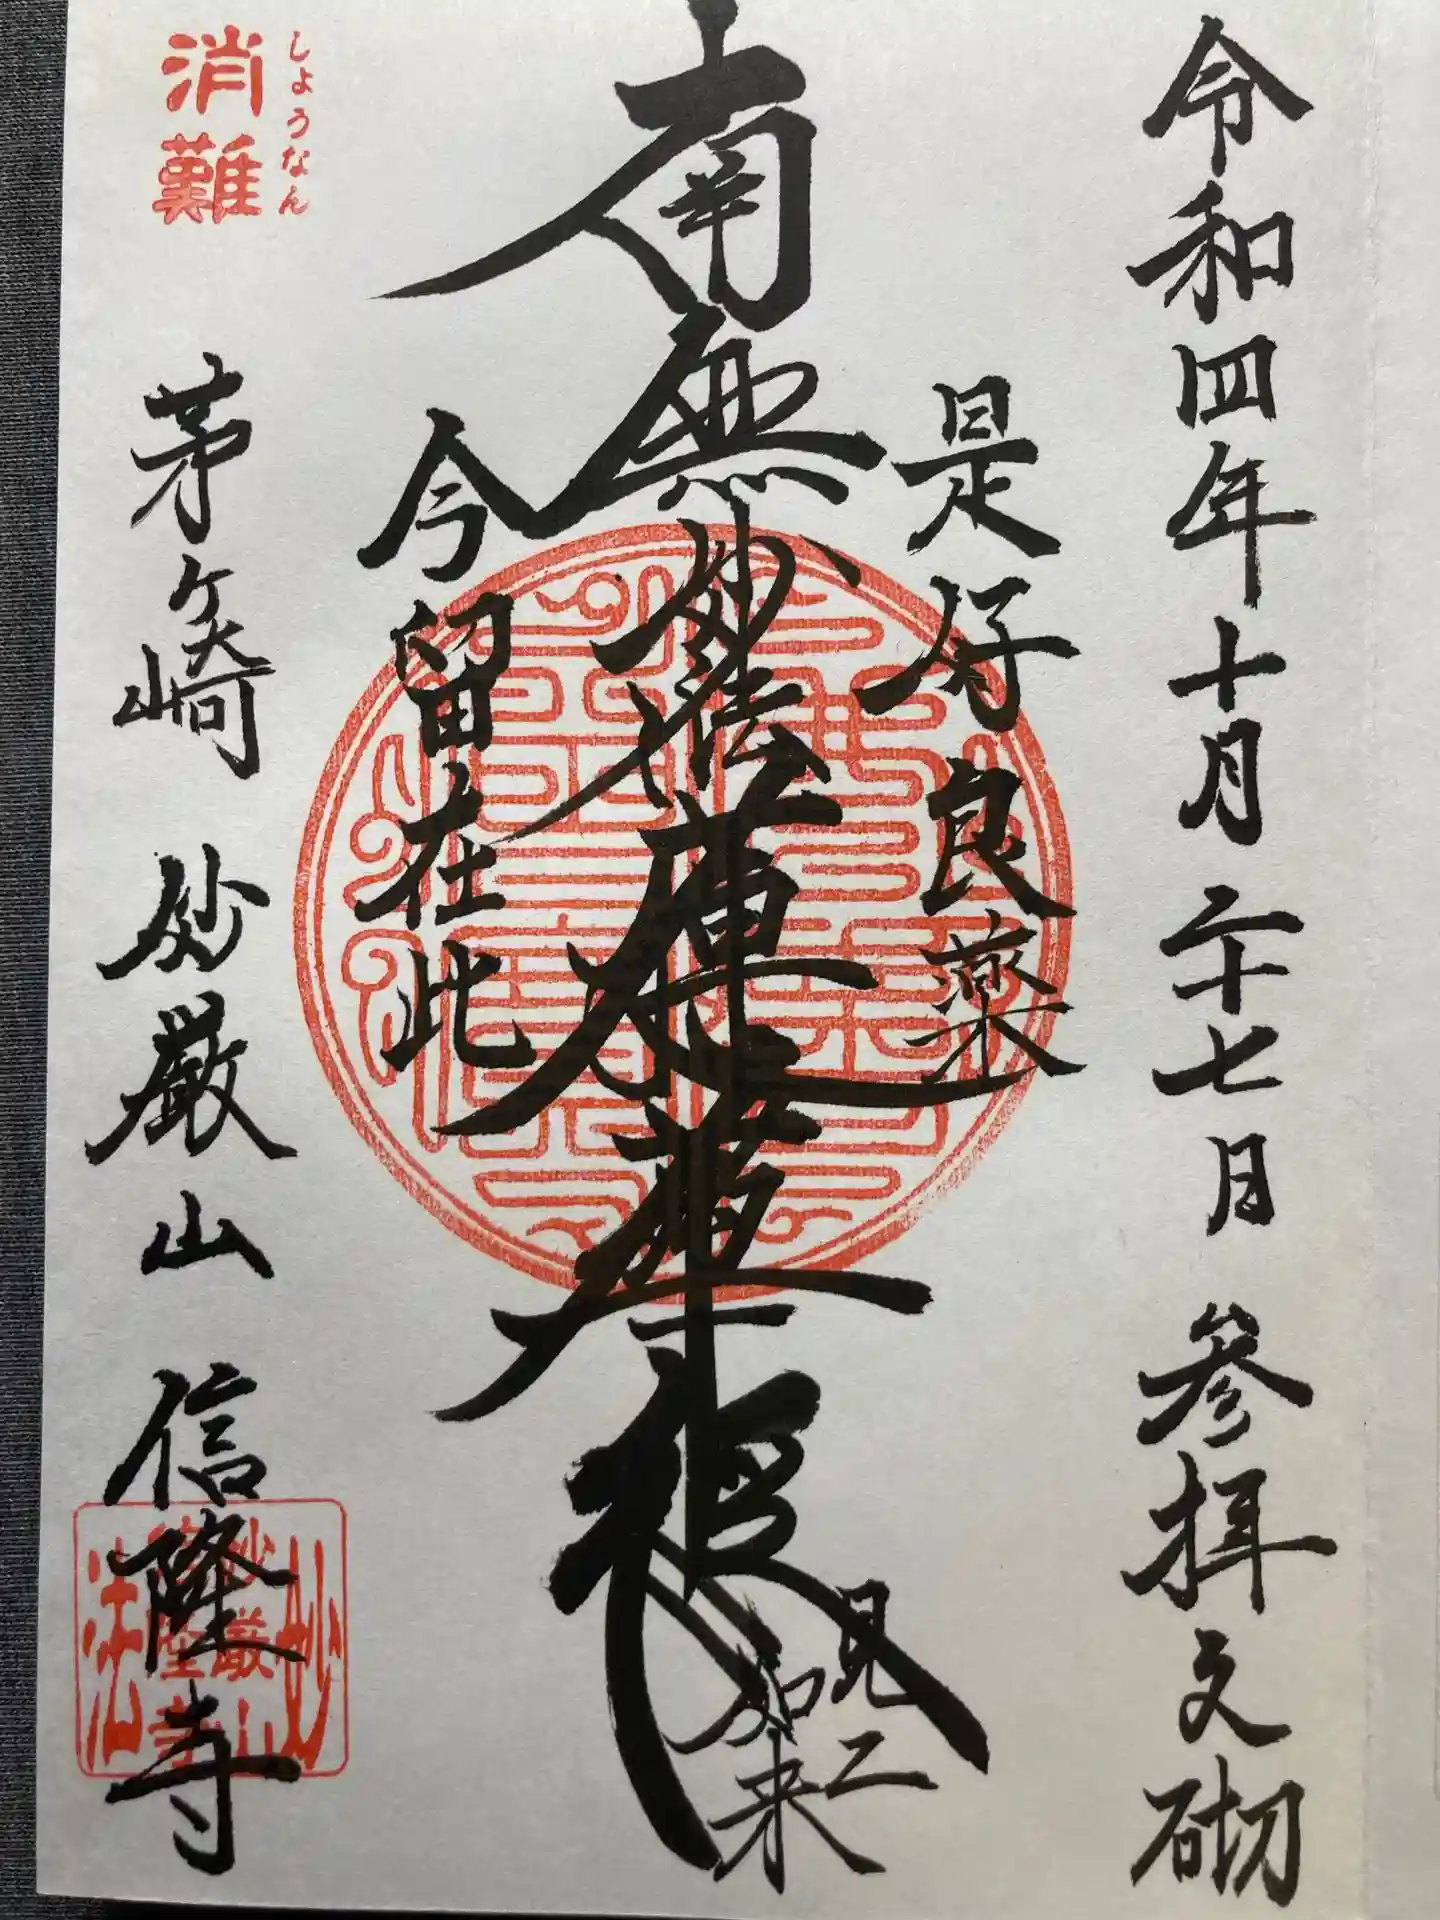 令和四年十月二十七日 参拝之砌
是好良薬
南無妙法蓮華経
見二
如来
今留在此
消難
しようなん
茅ヶ崎 妙厳山 信隆寺
妙法
妙厳山
信隆寺